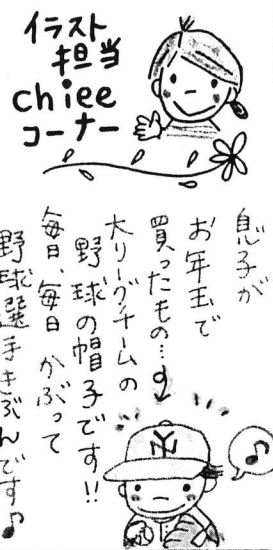 イラスト
担当
chiee
コーナー
息子が
お年玉で
買ったもの…
大リーグチームの
野球の帽子です!!
毎日、毎日 かぶって
野球選手きぶんです♪
NY
♪